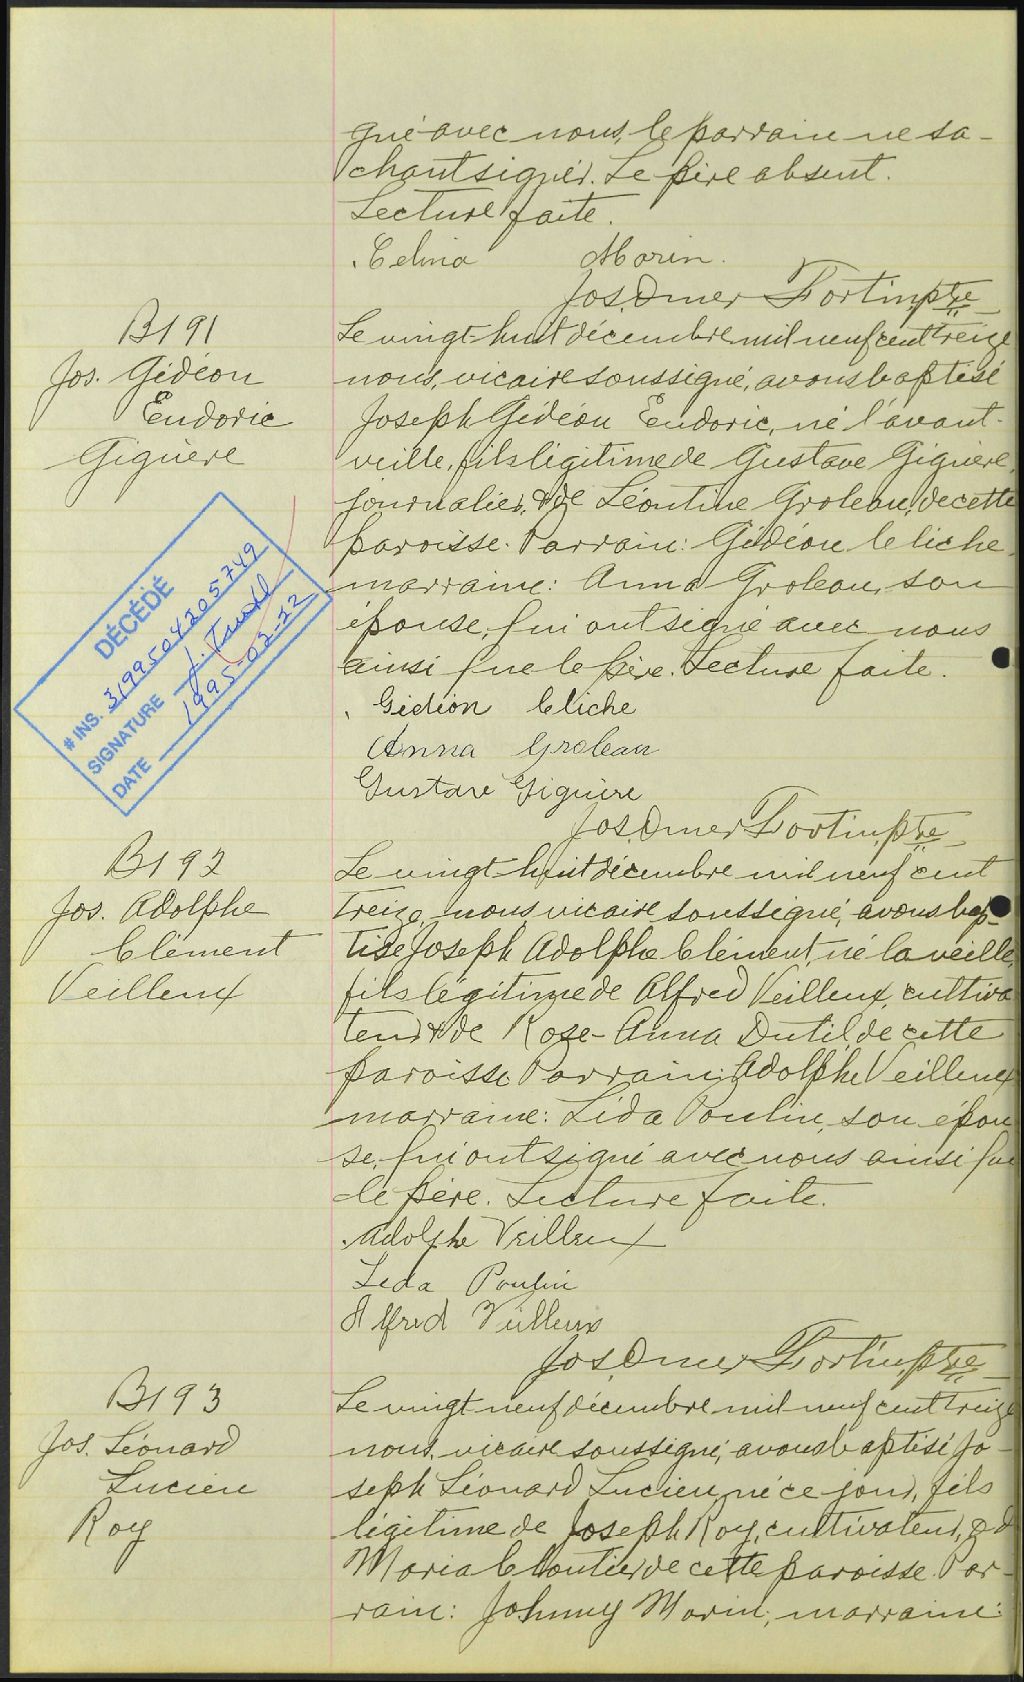 gné avec nous, le parrain ne sa-
chant signer. Le père absent.
Lecture faite.
Celina Morin.
Jos. Omer Fortin, ptre
B191
Jos. Gédéon
Eudoric
Giguère
Le vingt-huit décembre mil neuf cent treize
nous, vicaire soussigné, avons baptisé
Joseph Gédéon Eudoric, né l'avant-
veille, fils légitime de Gustave Giguère,
journalier, & de Léontine Groleau, de cette
paroisse. Parrain: Gédéon Cliche,
marraine: Anna Groleau, son
épouse, qui ont signé avec nous
ainsi que le père. Lecture faite.
Gédéon Cliche
Anna Groleau
Gustave Giguère
Jos. Omer Fortin, ptre
DÉCÉDÉ
# INS. 3199504205749
SIGNATURE J.
DATE 1995-02-22
B192
Jos. Adolphe
Clément
Veilleux
Le vingt-huit décembre mil neuf cent
treize, nous vicaire soussigné, avons bap-
tisé Joseph Adolphe Clément, né la veille,
fils légitime de Alfred Veilleux, cultiva
teur & de Rose-Anna Dutil, de cette
paroisse. Parrain: Adolphe Veilleux
marraine: Léda Poulin, son épou
se, qui ont signé avec nous ainsi que
le père. Lecture faite.
Adolphe Veilleux
Leda Poulin
Alfred Veilleux
Jos. Omer Fortin, ptre
B193
Jos. Léonard
Lucien
Roy
Le vingt-neuf décembre mil neuf cent treize
nous, vicaire soussigné, avons baptisé Jo-
seph Léonard Lucien, né ce jour, fils
légitime de Joseph Roy, cultivateur, & d
Maria Cloutier, de cette paroisse. Par-
rain: Johnny Morin, marraine: